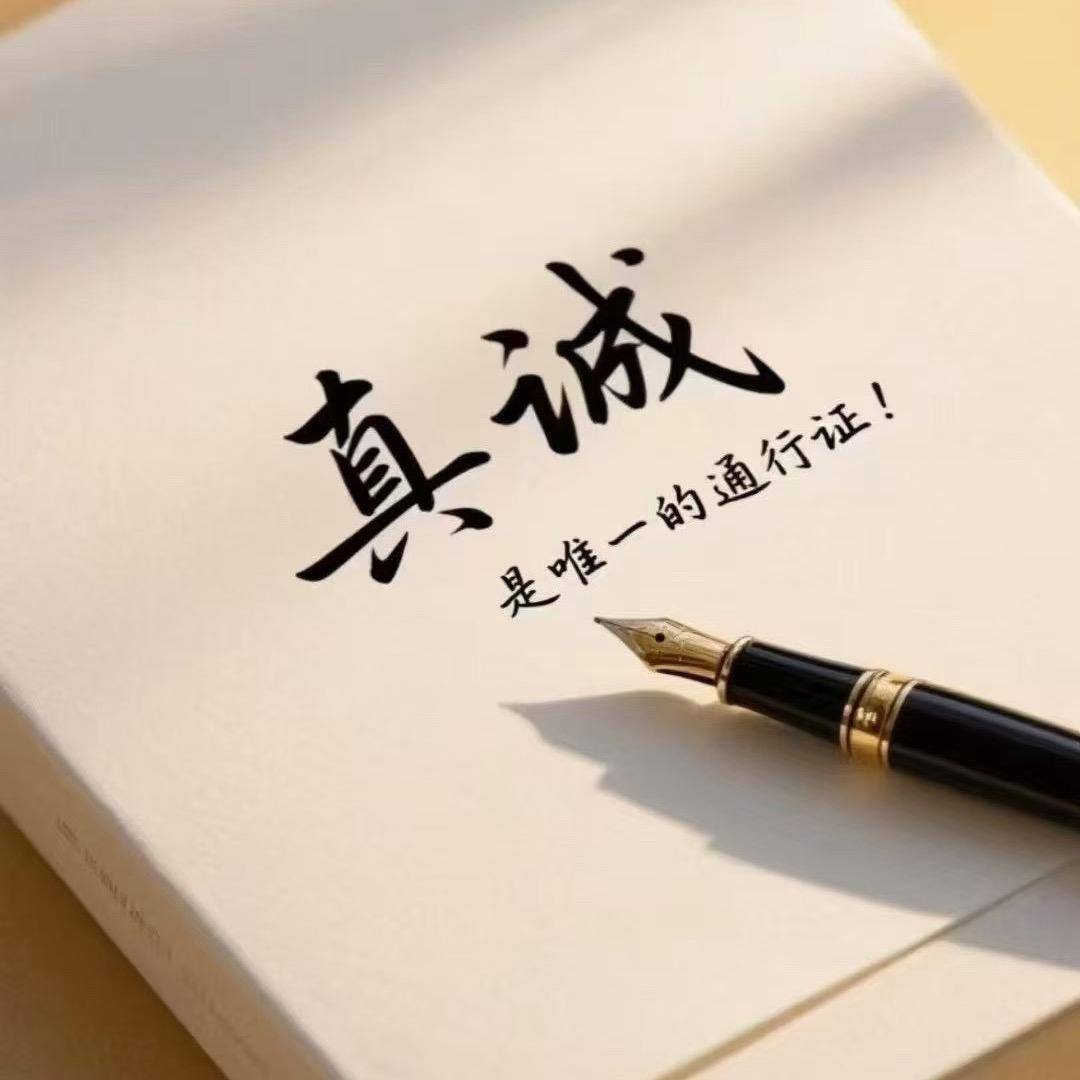 真诚
是唯一的通行证！